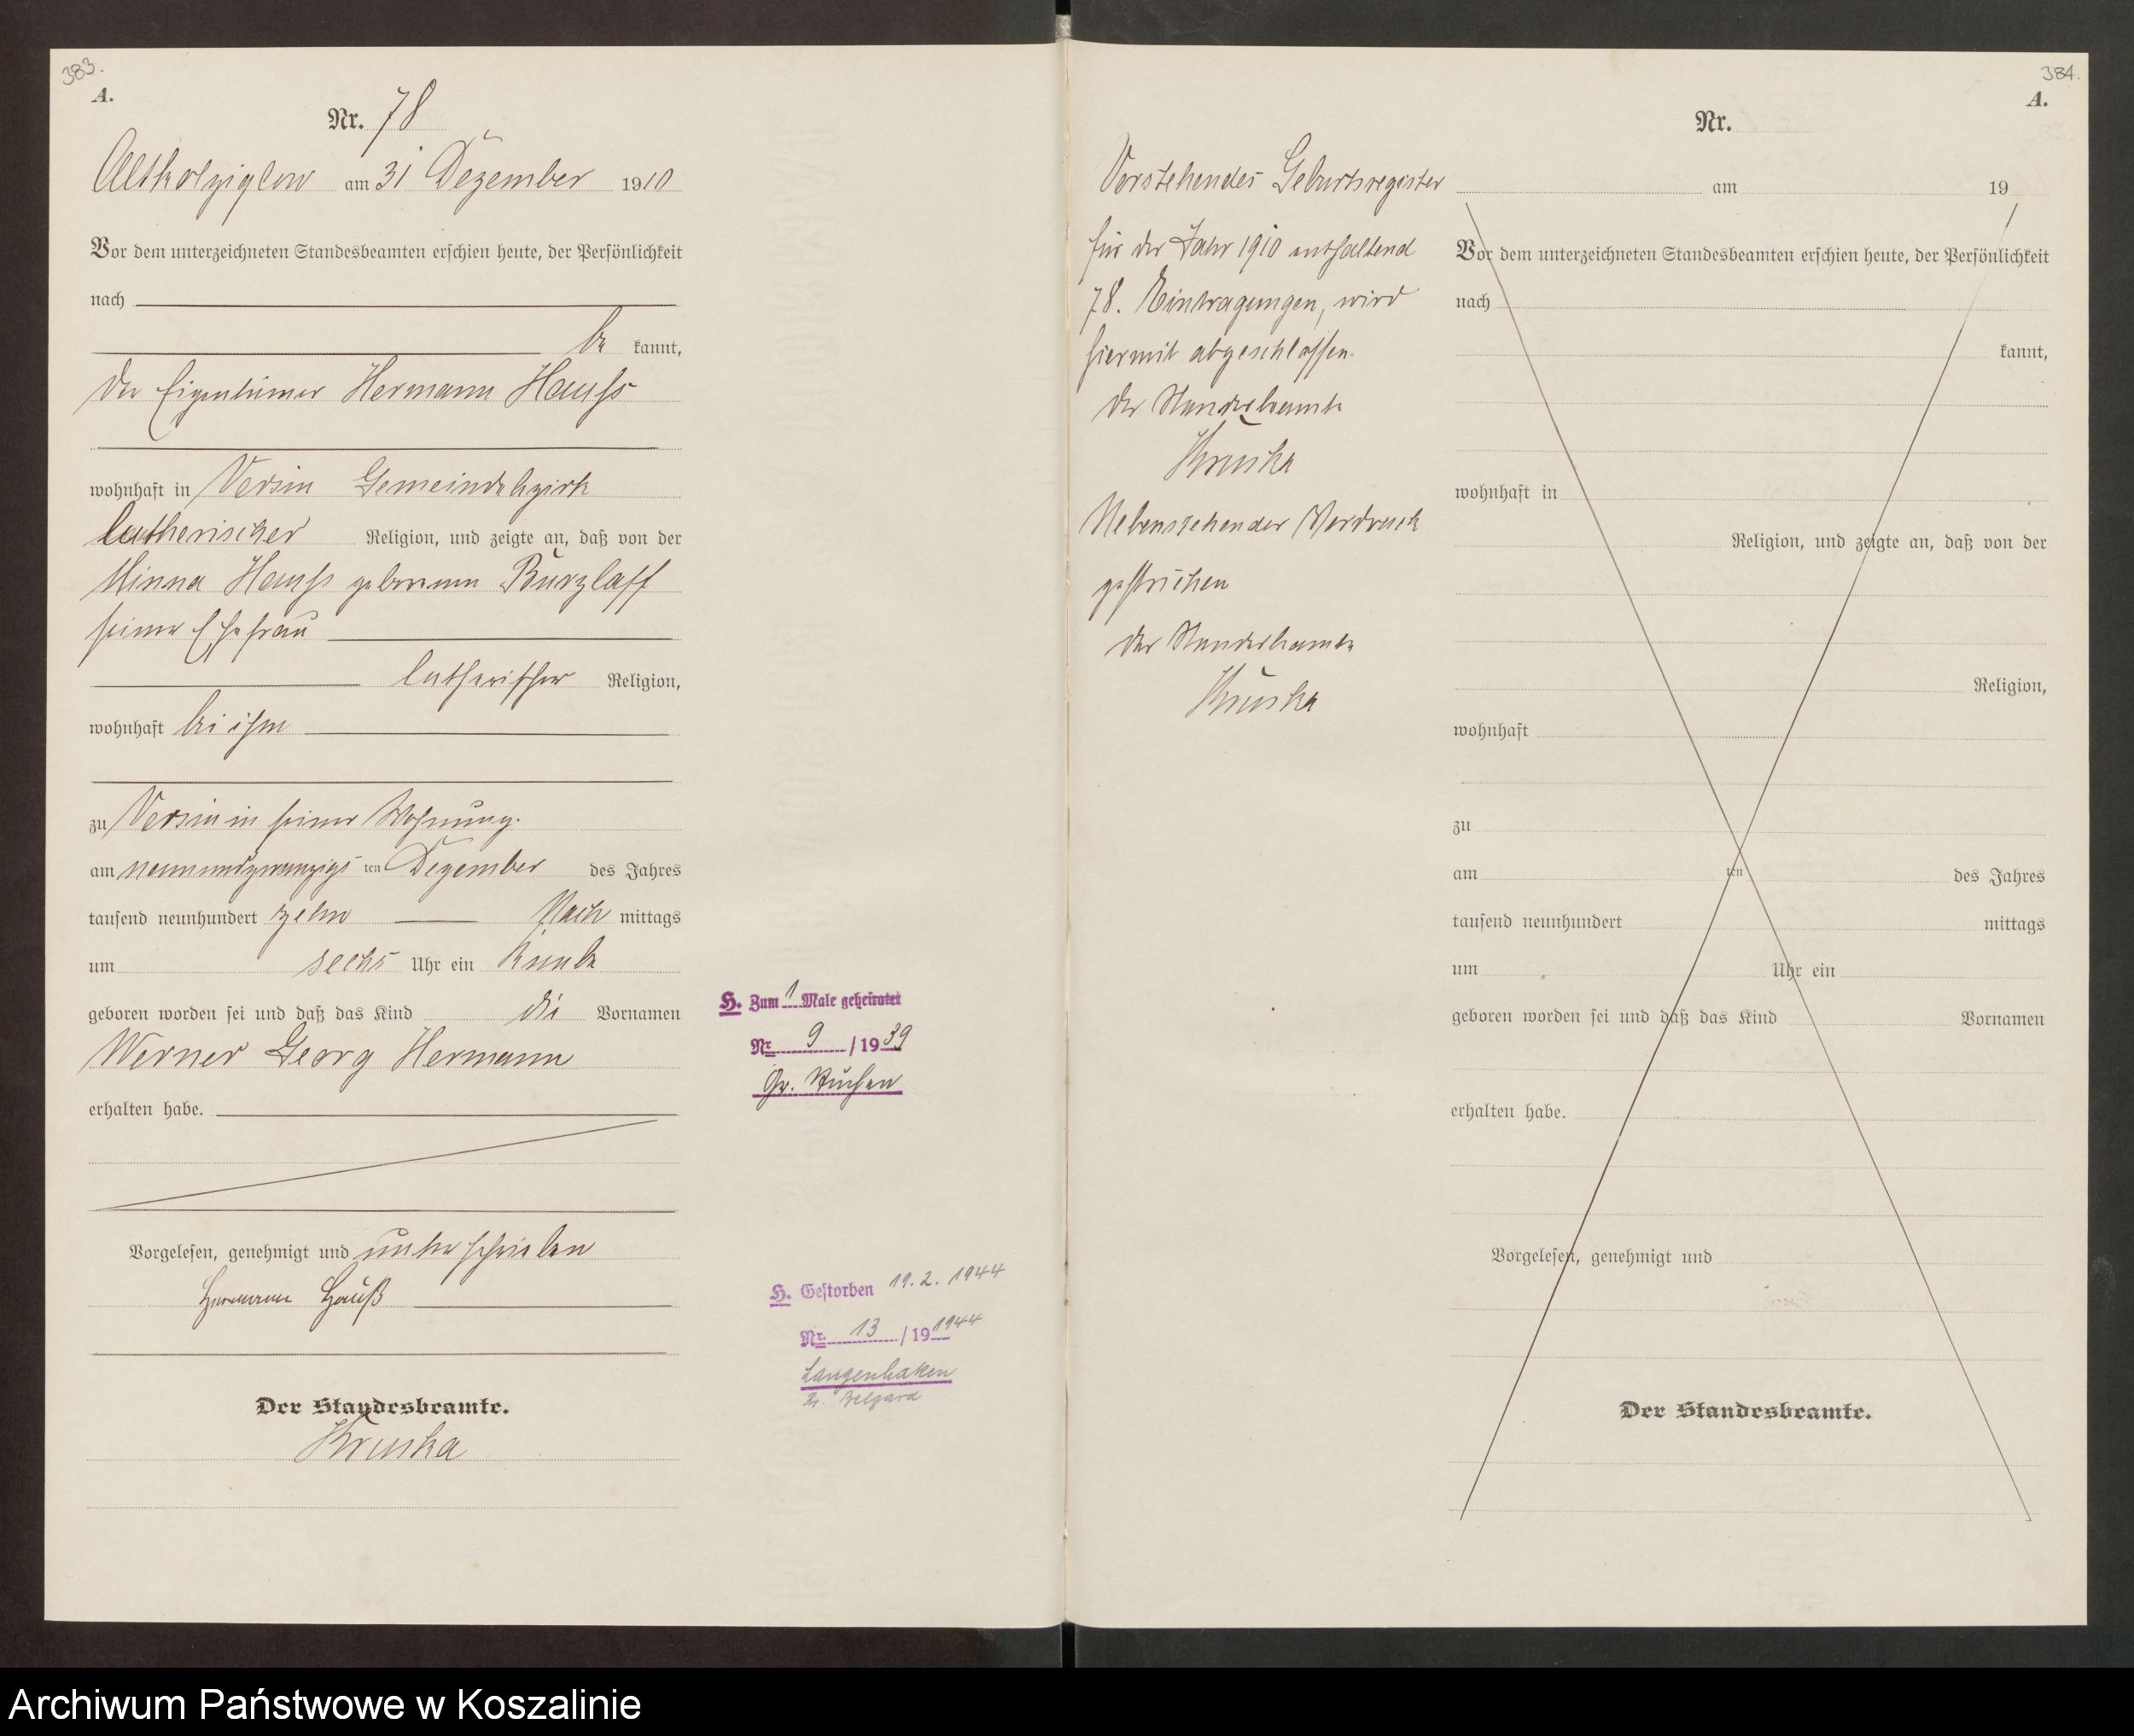 383.
A.
Nr. 78
Altkolziglow am 31 Dezember 1910
Vor dem unterzeichneten Standesbeamten erschien heute, der Persönlichkeit
nach
be kannt,
der Eigentümer Hermann Hauss
wohnhaft in Versin Gemeindebezirk
lutherischer Religion, und zeigte an, daß von der
Minna Hauss geborenen Burzlaff
seiner Ehefrau
lutherischer Religion,
wohnhaft bei ihm
zu Versin in seiner Wohnung.
am neunundzwanzigs ten Dezember des Jahres
tausend neunhundert zehn Nach mittags
um sechs Uhr ein Knabe
geboren worden sei und daß das Kind die Vornamen
Werner Georg Hermann
erhalten habe.
Vorgelesen, genehmigt und unterschrieben
Hermann Hauß
Der Standesbeamte.
Kruska
H. Zum 1 Male geheiratet
Nr. 9 / 1939
Gr. Tuchen
H. Gestorben 19. 2. 1944
Nr. 13 / 19 1944
Langenhaken
Kr. Belgard
384.
A.
Vorstehendes Geburtsregister
für das Jahr 1910 enthaltend
78. Eintragungen, wird
hiermit abgeschlossen.
Der Standesbeamte
Kruska
Nebenstehender Vordruck
gestrichen
Der Standesbeamte
Kruska
Nr.
am 19
Vor dem unterzeichneten Standesbeamten erschien heute, der Persönlichkeit
nach
kannt,
wohnhaft in
Religion, und zeigte an, daß von der
Religion,
wohnhaft
zu
am ten des Jahres
tausend neunhundert mittags
um Uhr ein
geboren worden sei und daß das Kind Vornamen
erhalten habe.
Vorgelesen, genehmigt und
Der Standesbeamte.
Archiwum Państwowe w Koszalinie